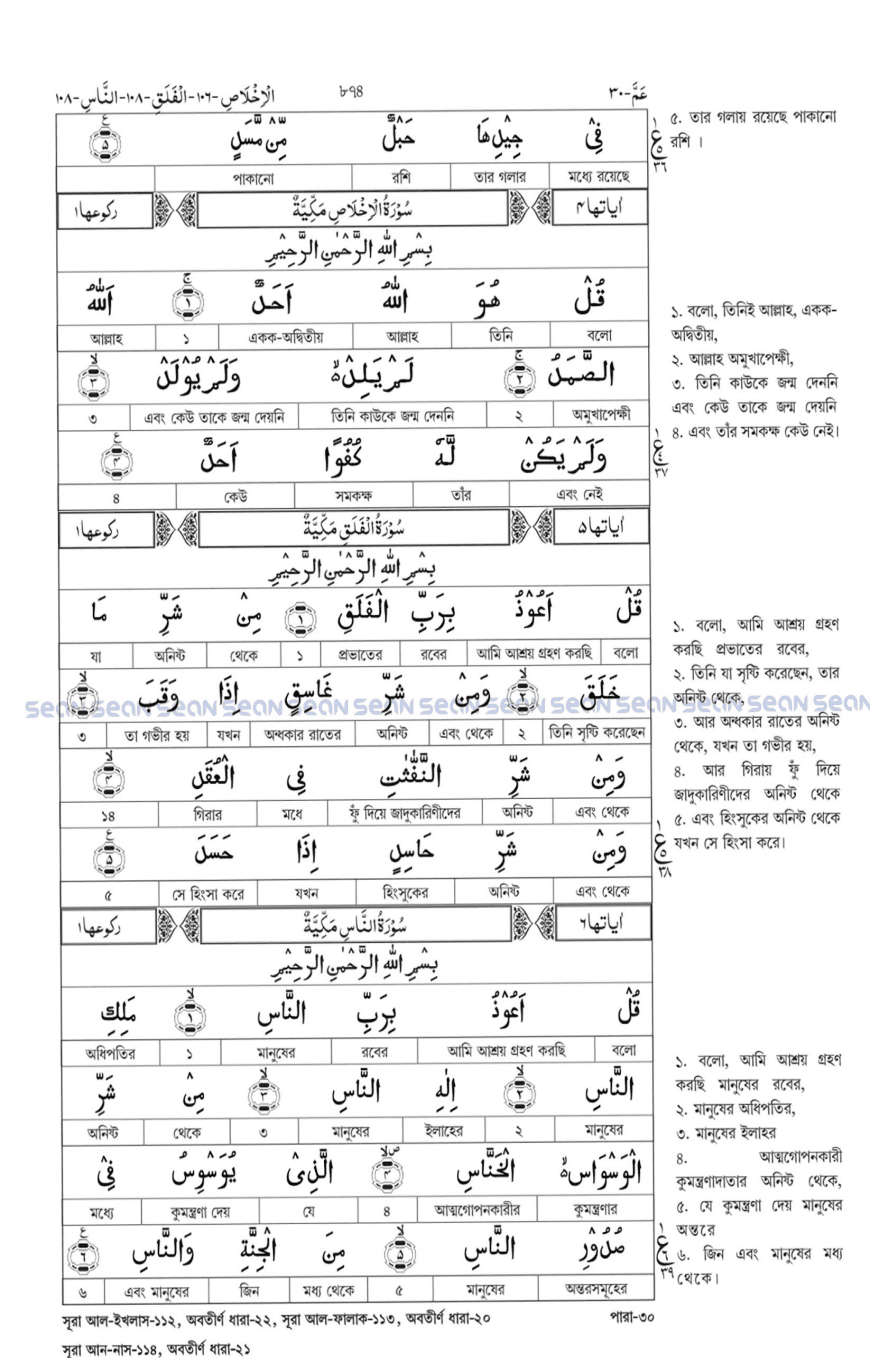 الْاِخْلَاصِ-١٠٦-الْفَلَقِ-١٠٨-النَّاسِ-١٠٨ ৮৭৪ عَمَّ-٣٠
فِیْ جِیْدِهَا حَبْلٌ مِّنْ مَّسَدٍ ۵
মধ্যে রয়েছে তার গলার রশি পাকানো
৫. তার গলায় রয়েছে পাকানো
রশি ।
اٰیاتها۴ سُوْرَةُ الْاِخْلَاصِ مَکِّیَّةٌ رکوعها۱
بِسْمِ اللّٰهِ الرَّحْمٰنِ الرَّحِیْمِ
قُلْ هُوَ اللّٰهُ اَحَدٌ ۱ اَللّٰهُ
বলো তিনি আল্লাহ একক-অদ্বিতীয় ১ আল্লাহ
الصَّمَدُ ۲ لَمْ یَلِدْ وَلَمْ یُوْلَدْ ۳
অমুখাপেক্ষী ২ তিনি কাউকে জন্ম দেননি এবং কেউ তাকে জন্ম দেয়নি ৩
وَلَمْ یَكُنْ لَّهٗ كُفُوًا اَحَدٌ ۴
এবং নেই তাঁর সমকক্ষ কেউ ৪
১. বলো, তিনিই আল্লাহ, একক-
অদ্বিতীয়,
২. আল্লাহ অমুখাপেক্ষী,
৩. তিনি কাউকে জন্ম দেননি
এবং কেউ তাকে জন্ম দেয়নি
৪. এবং তাঁর সমকক্ষ কেউ নেই।
اٰیاتها۵ سُوْرَةُ الْفَلَقِ مَکِّیَّةٌ رکوعها۱
بِسْمِ اللّٰهِ الرَّحْمٰنِ الرَّحِیْمِ
قُلْ اَعُوْذُ بِرَبِّ الْفَلَقِ ۱ مِنْ شَرِّ مَا
বলো আমি আশ্রয় গ্রহণ করছি রবের প্রভাতের ১ থেকে অনিষ্ট যা
خَلَقَ ۲ وَمِنْ شَرِّ غَاسِقٍ اِذَا وَقَبَ ۳
তিনি সৃষ্টি করেছেন ২ এবং থেকে অনিষ্ট অন্ধকার রাতের যখন তা গভীর হয় ৩
وَمِنْ شَرِّ النَّفّٰثٰتِ فِی الْعُقَدِ ۴
এবং থেকে অনিষ্ট ফুঁ দিয়ে জাদুকারিণীদের মধে গিরার ১৪
وَمِنْ شَرِّ حَاسِدٍ اِذَا حَسَدَ ۵
এবং থেকে অনিষ্ট হিংসুকের যখন সে হিংসা করে ৫
১. বলো, আমি আশ্রয় গ্রহণ
করছি প্রভাতের রবের,
২. তিনি যা সৃষ্টি করেছেন, তার
অনিষ্ট থেকে,
৩. আর অন্ধকার রাতের অনিষ্ট
থেকে, যখন তা গভীর হয়,
৪. আর গিরায় ফুঁ দিয়ে
জাদুকারিণীদের অনিষ্ট থেকে
৫. এবং হিংসুকের অনিষ্ট থেকে
যখন সে হিংসা করে।
sean sean sean sean sean sean sean sean sean sean sean
اٰیاتها۶ سُوْرَةُ النَّاسِ مَکِّیَّةٌ رکوعها۱
بِسْمِ اللّٰهِ الرَّحْمٰنِ الرَّحِیْمِ
قُلْ اَعُوْذُ بِرَبِّ النَّاسِ ۱ مَلِكِ
বলো আমি আশ্রয় গ্রহণ করছি রবের মানুষের ১ অধিপতির
النَّاسِ ۲ اِلٰهِ النَّاسِ ۳ مِنْ شَرِّ
মানুষের ২ ইলাহের মানুষের ৩ থেকে অনিষ্ট
الْوَسْوَاسِ الْخَنَّاسِ ۴ الَّذِیْ یُوَسْوِسُ فِیْ
কুমন্ত্রণার আত্মগোপনকারীর ৪ যে কুমন্ত্রণা দেয় মধ্যে
صُدُوْرِ النَّاسِ ۵ مِنَ الْجِنَّةِ وَالنَّاسِ ۶
অন্তরসমূহের মানুষের ৫ মধ্য থেকে জিন এবং মানুষের ৬
১. বলো, আমি আশ্রয় গ্রহণ
করছি মানুষের রবের,
২. মানুষের অধিপতির,
৩. মানুষের ইলাহর
৪. আত্মগোপনকারী
কুমন্ত্রণাদাতার অনিষ্ট থেকে,
৫. যে কুমন্ত্রণা দেয় মানুষের
অন্তরে
৬. জিন এবং মানুষের মধ্য
থেকে।
সূরা আল-ইখলাস-১১২, অবতীর্ণ ধারা-২২, সূরা আল-ফালাক-১১৩, অবতীর্ণ ধারা-২০ পারা-৩০
সূরা আন-নাস-১১৪, অবতীর্ণ ধারা-২১